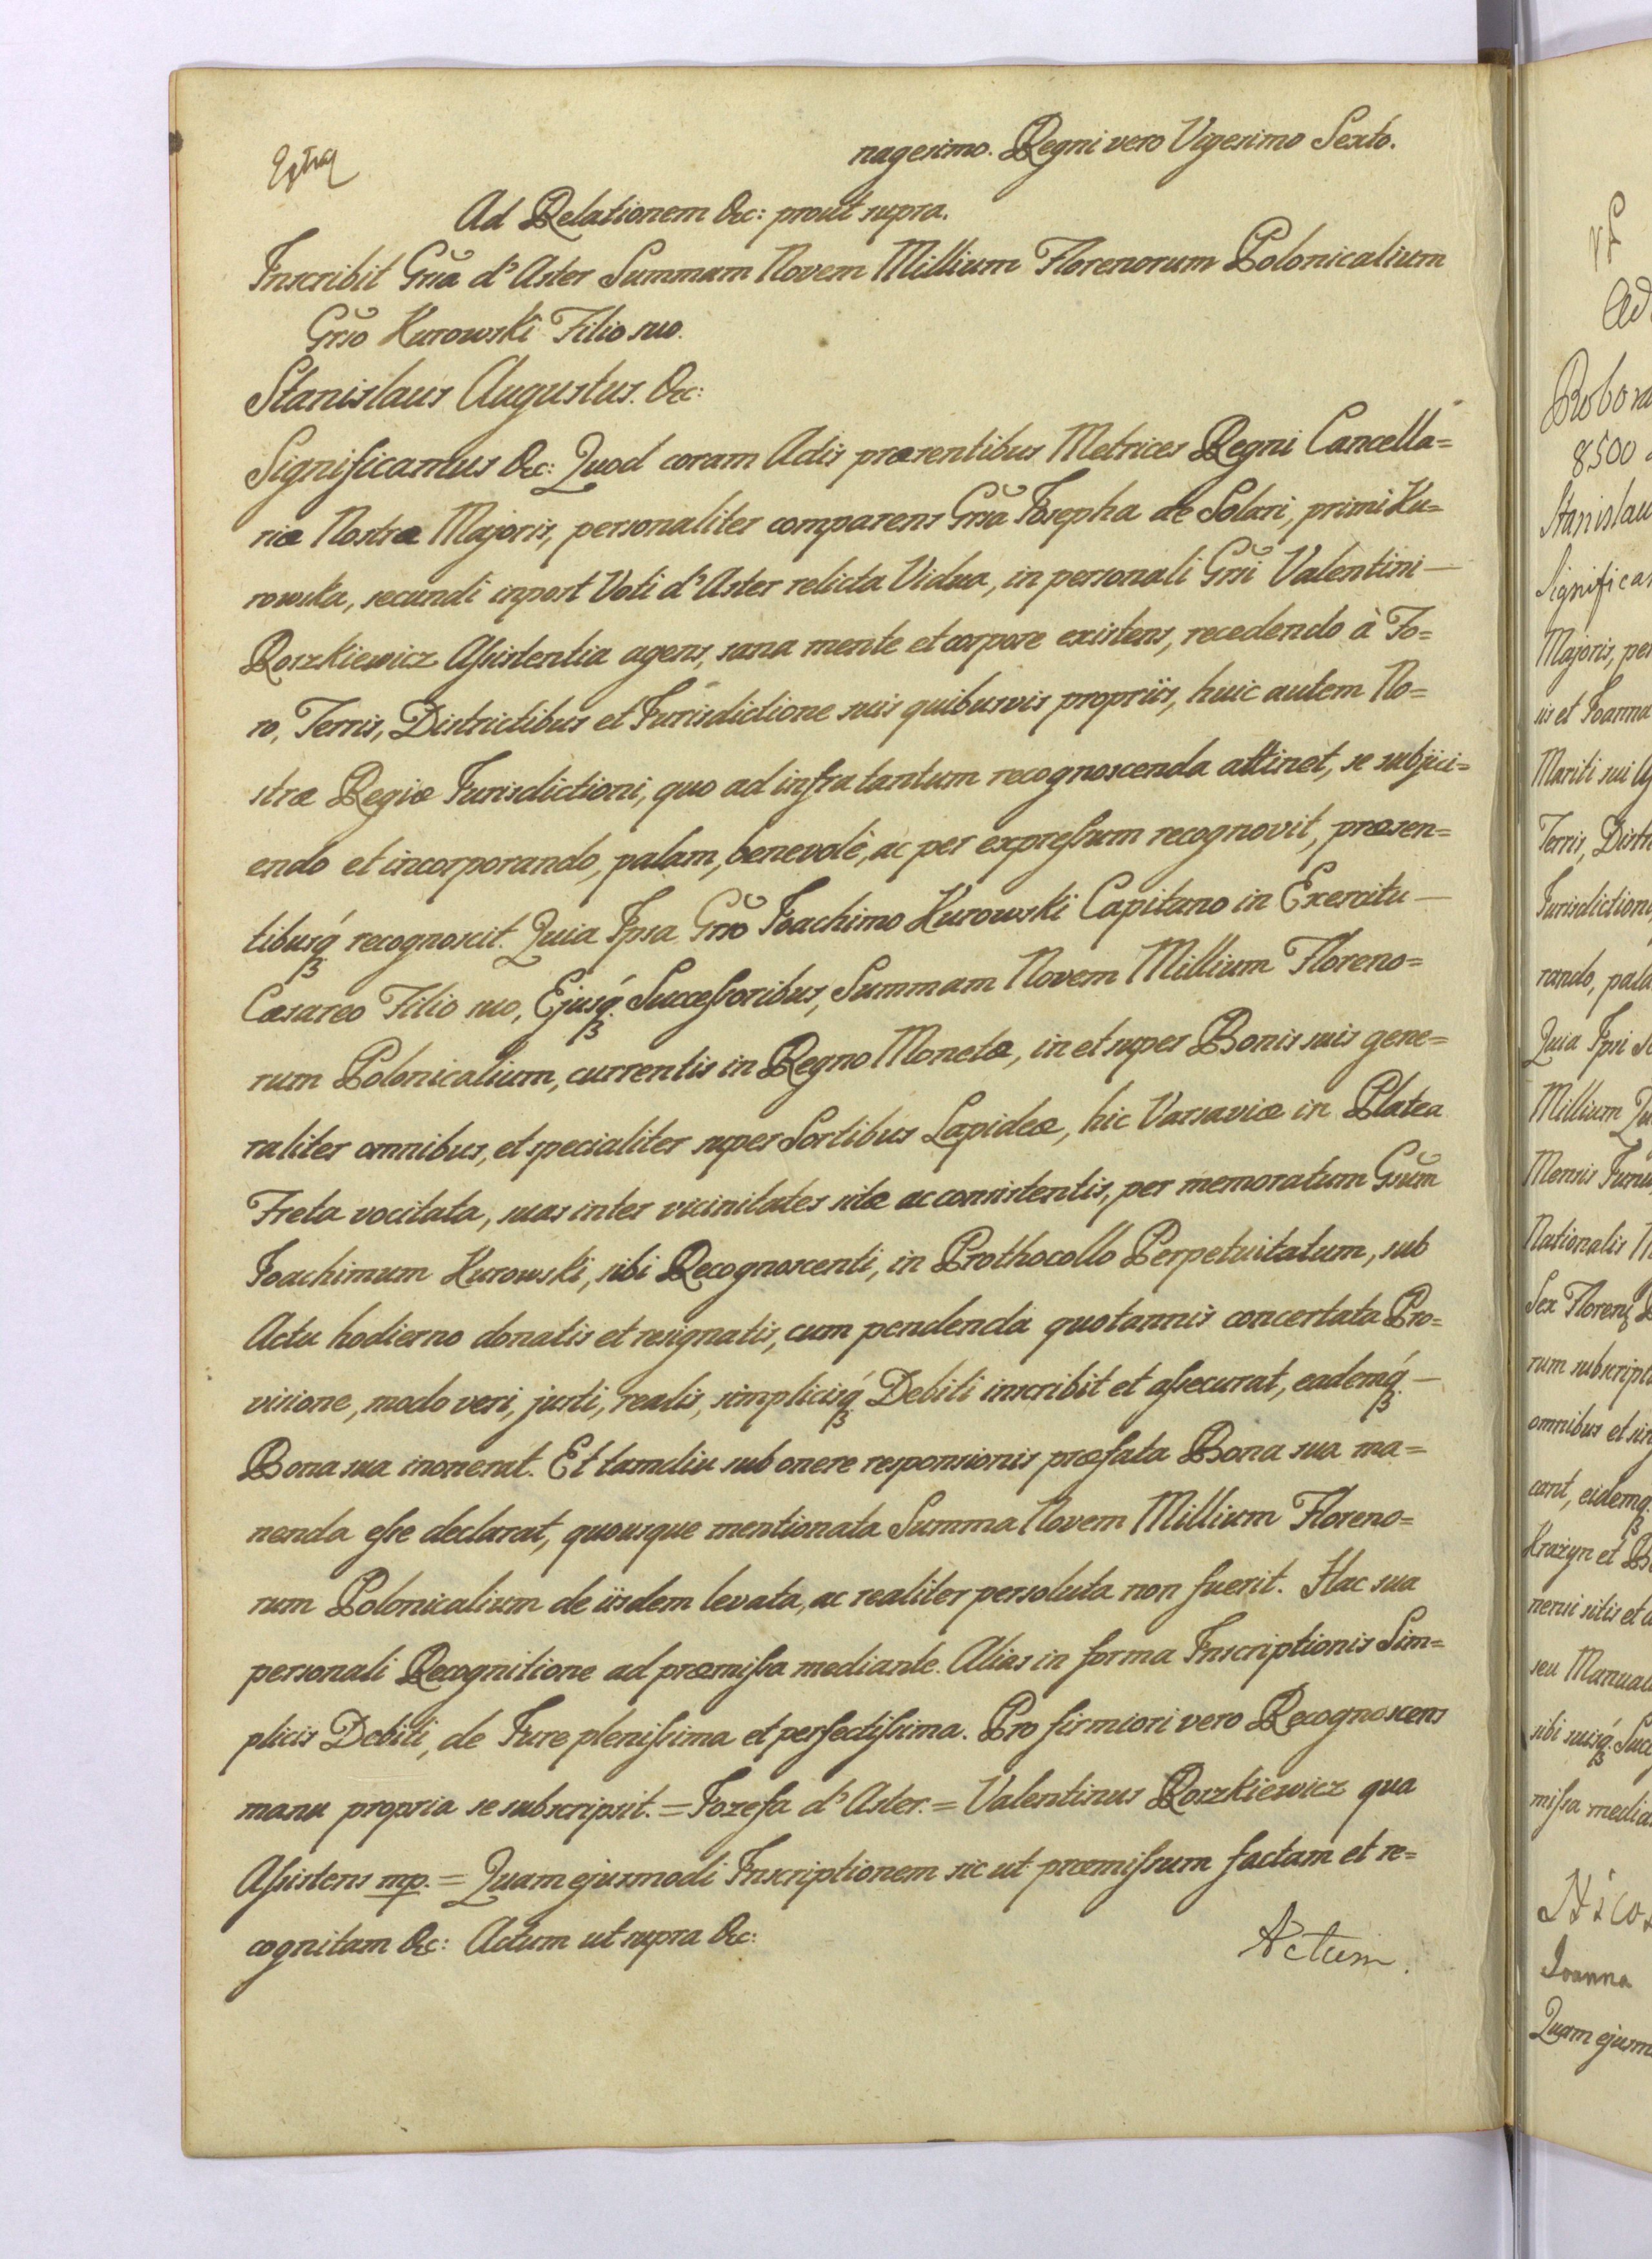 nagesimo. Regni vero Vigesimo Sexto.
Ad Relationem &c: prout supra.
Inscribit Gr̃sa d'Aster Summam Novem Millium Florenorum Polonicalium
Gr̃so Kurowski Filio suo.
Stanislaus Augustus. &c:
Significamus &c: Quod coram Actis præsentibus Metrices Regni Cancella=
riæ Nostræ Majoris, personaliter comparens Gr̃sa Josepha de Solari, primi Ku=
rowska, secundi inpost Voti d'Aster relicta Vidua, in personali Gr̃si Valentini —
Roszkiewicz Assistentia agens, sana mente et corpore existens, recedendo à Fo=
ro, Terris, Districtibus et Jurisdictione suis quibusvis propriis, huic autem No=
stræ Regiæ Jurisdictioni, quo ad infra tantum recognoscenda attinet, se subjici=
endo et incorporando, palam, benevolè, ac per expressum recognovit, præsen=
tibusq́ recognoscit. Quia Ipsa Gr̃so Joachimo Kurowski Capitano in Exercitu —
Cæsareo Filio suo, Ejusq́ Successoribus, Summam Novem Millium Floreno=
rum Polonicalium, currentis in Regno Monetæ, in et super Bonis suis gene=
raliter omnibus, et specialiter super Sortibus Lapideæ, hic Varsaviæ in Platea
Freta vocitata, suas inter vicinitates sitæ ac consistentis, per memoratum Gr̃sum
Joachimum Kurowski, sibi Recognoscenti, in Prothocollo Perpetuitatum, sub
Actu hodierno donatis et resignatis, cum pendenda quotannis concertata Pro=
visione, modo veri, justi, realis, simplicisq́ Debiti inscribit et assecurat, eademq́ —
Bona sua inonerat. Et tamdiu sub onere responsionis præfata Bona sua ma=
nenda esse declarat, quousque mentionata Summa Novem Millium Floreno=
rum Polonicalium de iisdem levata, ac realiter persoluta non fuerit. Hac sua
personali Recognitione ad præmissa mediante. Alias in forma Inscriptionis Sim=
plicis Debiti, de Jure plenissima et perfectissima. Pro firmiori vero Recognoscens
manu propria se subscripsit. = Jozefa d'Aster. = Valentinus Roszkiewicz qua
Assistens mp. = Quam ejusmodi Inscriptionem sic ut præmissum factam et re=
cognitam &c: Actum ut supra &c:
Actum.
Ad
Robora
8500
Stanislau
Significa
Majoris, per
iis et Joanna
Mariti sui
Terris, Distri
Jurisdictioni
rando, pala
Quia Ipsi
Millium
Mensis
Nationalis
Sex Floren
rum subscript
omnibus et sin
cant, eidemq́
Krazyn et
nensi sitis et
seu Manuali
sibi suisq́ Succ
missa media
Joanna
Quam ejusm